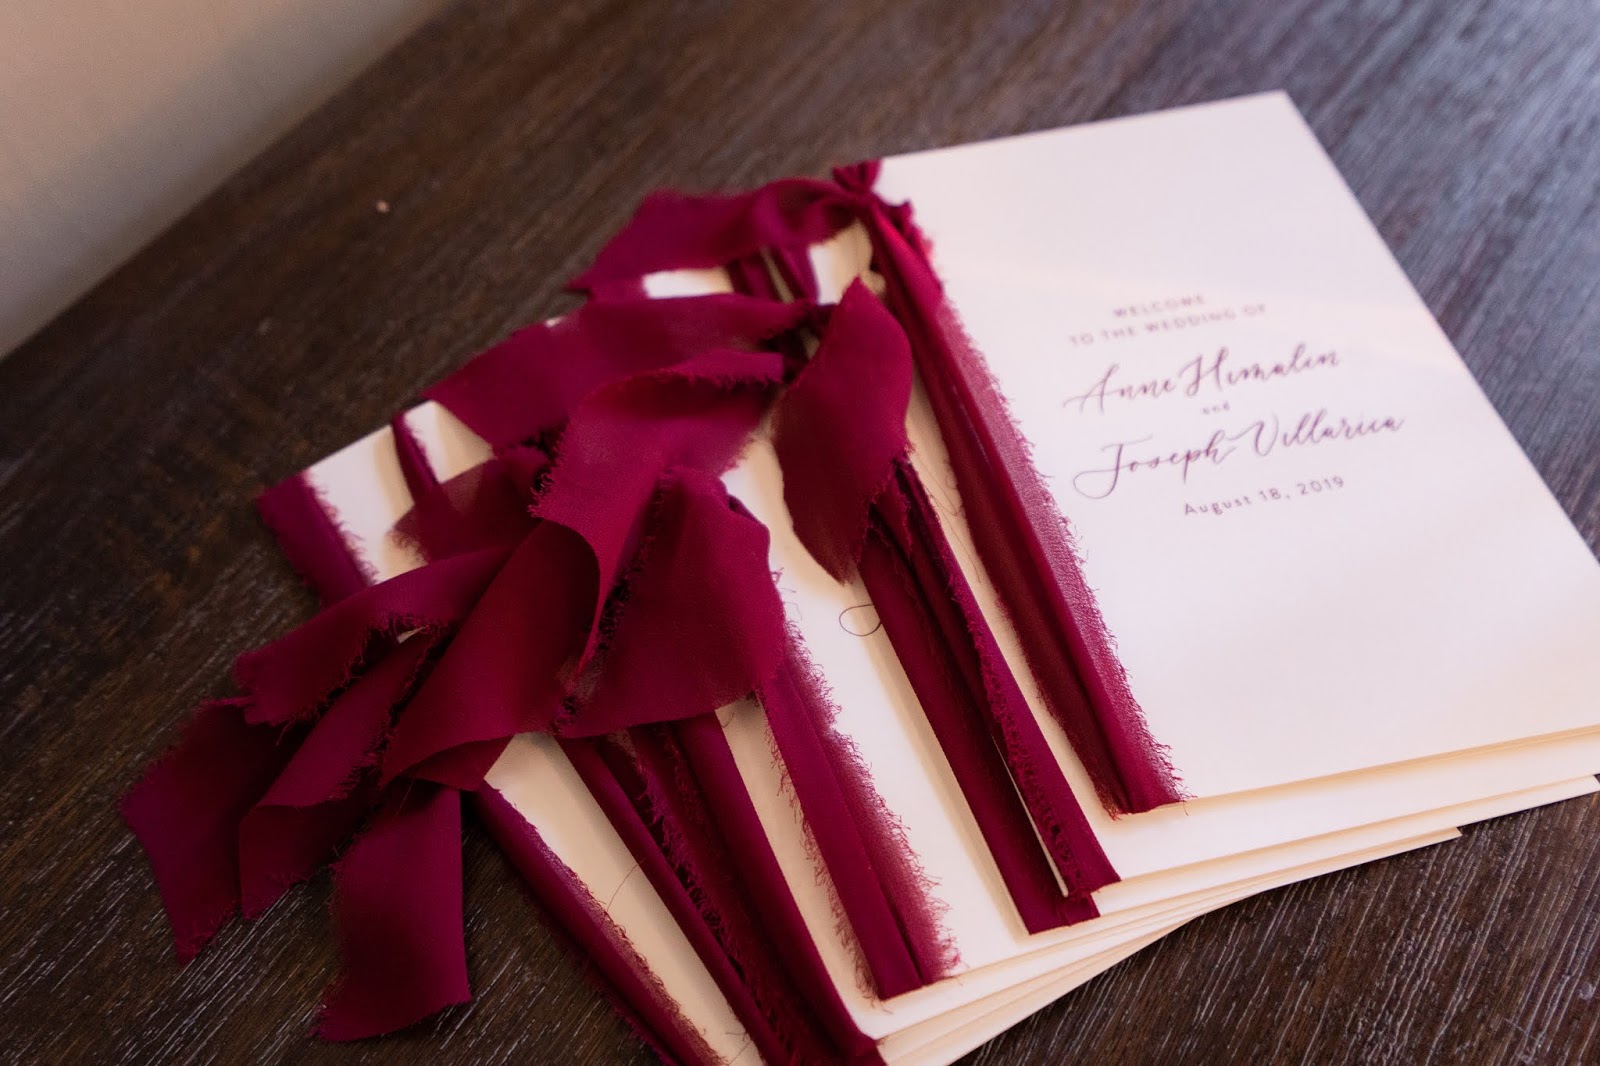 WELCOME
TO THE WEDDING OF
Anne Himalin
and
Joseph Villarica
August 18, 2019